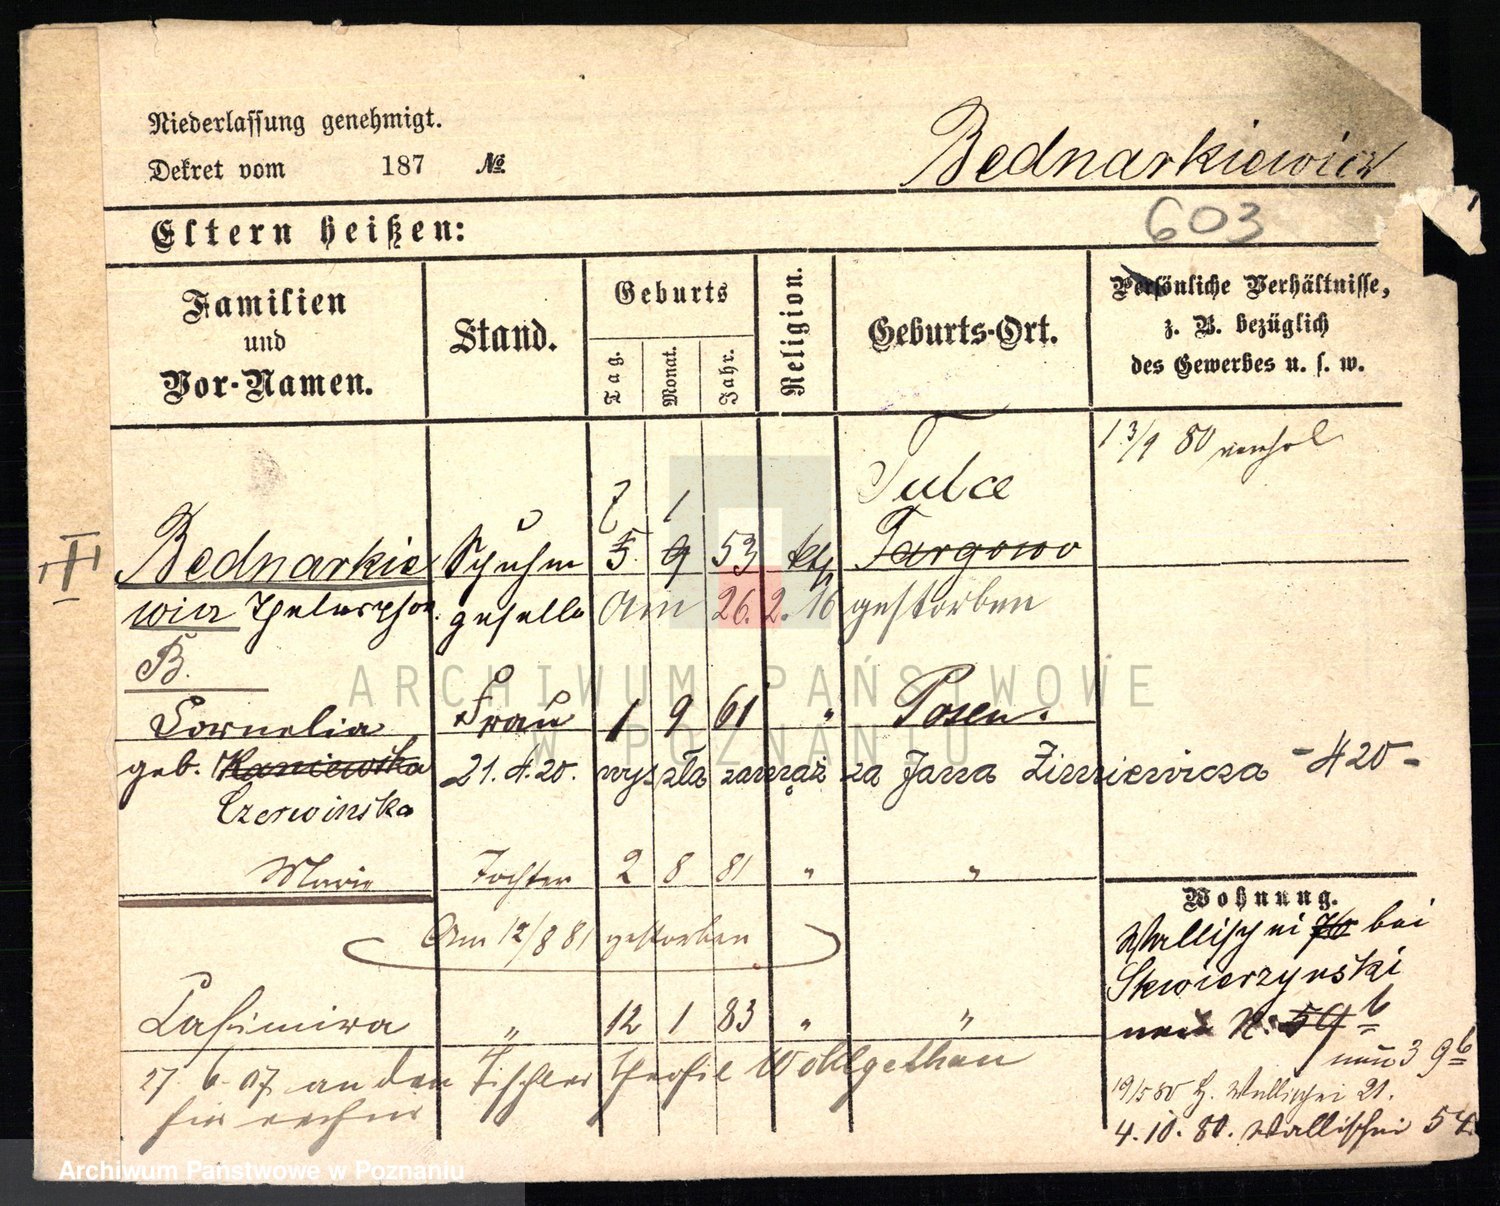 Niederlassung genehmigt.
Dekret vom 187 №
Bednarkiewicz
603
Eltern heißen:
Familien und Vor-Namen.
Stand.
Geburts
Tag.
Monat.
Jahr.
Religion.
Geburts-Ort.
Persönliche Verhältnisse, z. B. bezüglich des Gewerbes u. s. w.
13/9 80
7 1 Tulce
III
Bednarkie Schuhm 5 9 53 kth Targowo
wicz Thelesphor. geselle am 26. 2. 16 gestorben
B.
Cornelia Frau 1 9 61 " Posen.
geb. Kaniewska 21. 4. 20. wyszła zamąż za Jana Zimniewicza - 4 20 -
Czerwinska
Marie Tochter 2 8 81 " "
Am 12/8 81 gestorben
Casimira " 12 1 83 " "
27 6 07 an den Tischler Theofil Wohlgethan
hier
Wohnung.
Wallischei 70 bei
Skwierzynski
N: 59 b
nun 3 9 b
19/5 80 H. Wallischei 21.
4. 10. 80. Wallischei 54.
ARCHIWUM PAŃSTWOWE
W POZNANIU
Archiwum Państwowe w Poznaniu